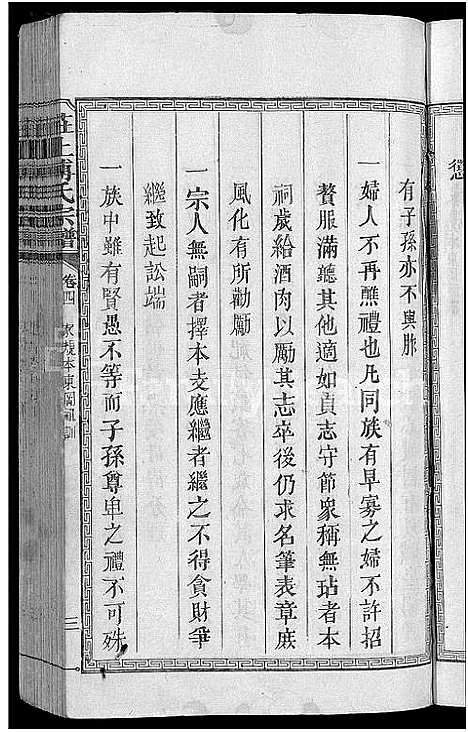 懲
有子孫亦不與胙
一婦人不再醮禮也凡同族有早寡之婦不許招
贅服滿聽其他適如貞志守節衆稱無玷者本
祠歲給酒肉以勵其志卒後仍求名筆表章庶
風化有所勸勵
一宗人無嗣者擇本支應繼者繼之不得貪財爭
繼致起訟端
一族中雖有賢愚不等而子孫尊卑之禮不可殊
氏宗譜
卷四
三